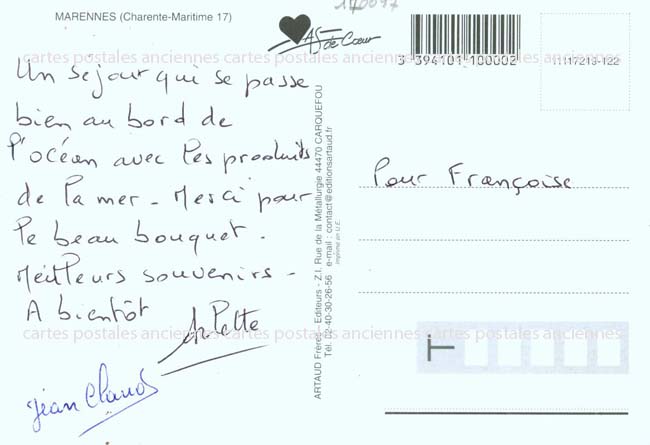 MARENNES (Charente-Maritime 17)
140097
As de Cœur
3 394101 100002
11117218-122
cartes postales anciennes cartes postales anciennes cartes postales anciennes
Un séjour qui se passe
bien au bord de
l'océan avec les produits
de la mer - Merci pour
le beau bouquet -
Meilleurs souvenirs -
A bientôt
Arlette
Jean Claude
ARTAUD Frères - Editeurs - Z.I. Rue de la Métallurgie 44470 CARQUEFOU
Tél. 02-40-30-26-56 e-mail : contact@editionsartaud.fr
Imprimé en U.E.
Pour Françoise
cartes postales anciennes cartes postales anciennes cartes postales anciennes